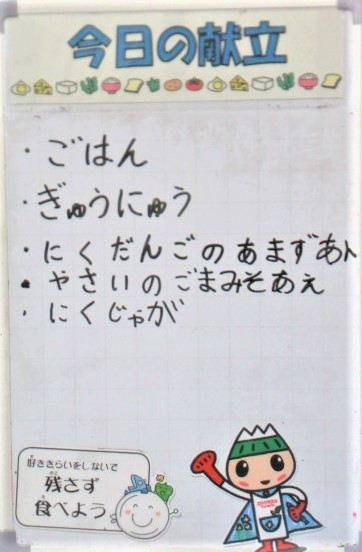 今日の献立
・ごはん
・ぎゅうにゅう
・にくだんごのあまずあん
・やさいのごまみそあえ
・にくじゃが
好ききらいをしないで
残さず
食べよう